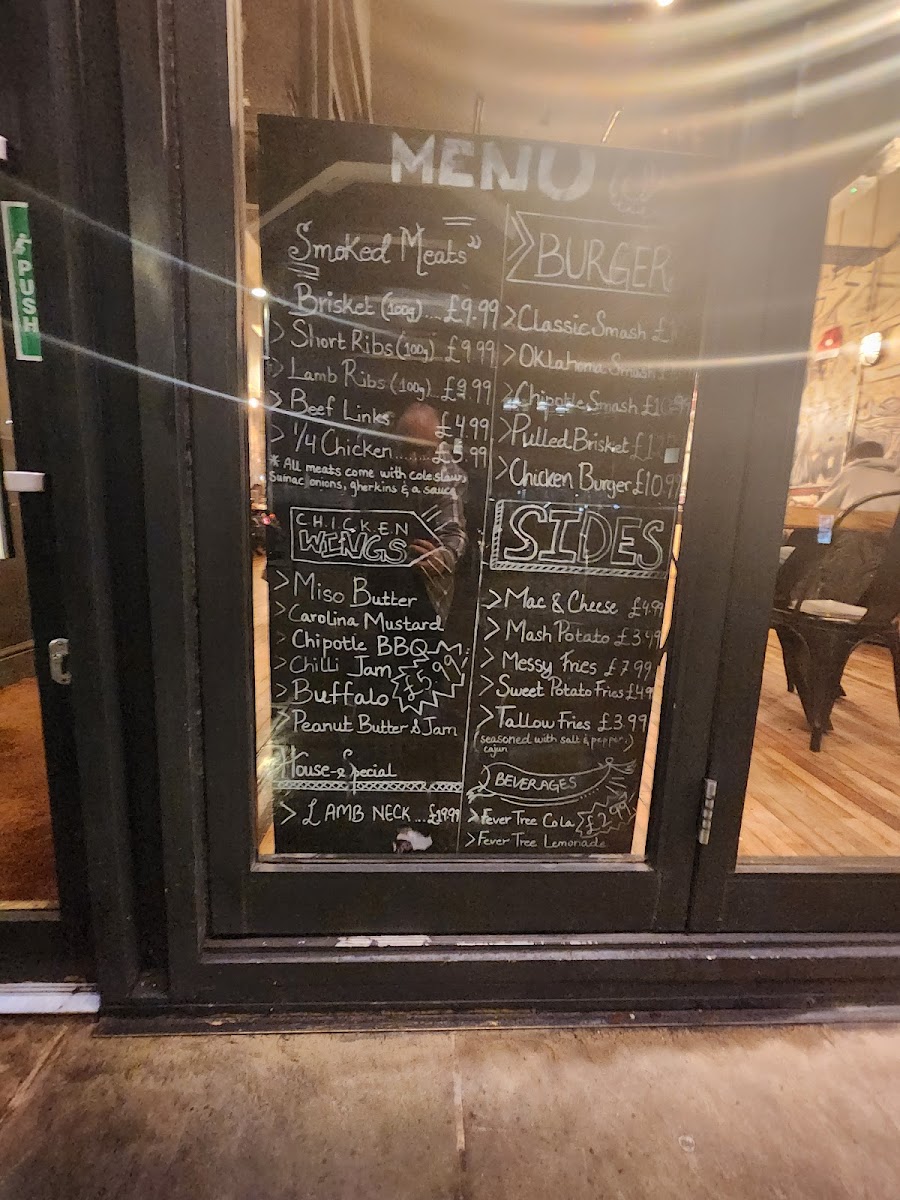 PUSH
MENU
Smoked Meats
Brisket (100g).... £9.99
> Short Ribs (100g) £9.99
> Lamb Ribs (100g) £9.99
> Beef Links £4.99
> 1/4 Chicken........ £5.99
* All meats come with coleslaw,
Sumac onions, gherkins & a sauce
CHICKEN
WINGS
> Miso Butter
> Carolina Mustard
> Chipotle BBQ
> Chilli Jam
£5.99
> Buffalo
> Peanut Butter & Jam
House-Special
> LAMB NECK... £19.99
BURGER
> Classic Smash
> Oklahoma Smash
> Chipotle Smash £10.99
> Pulled Brisket
> Chicken Burger £10.9
SIDES
> Mac & Cheese £4.99
> Mash Potato £3.49
> Messy Fries £7.99
> Sweet Potato Fries £4.9
> Tallow Fries £3.99
(seasoned with salt & pepper,)
cajun
BEVERAGES
> Fever Tree Cola
£2.99
> Fever Tree Lemonade